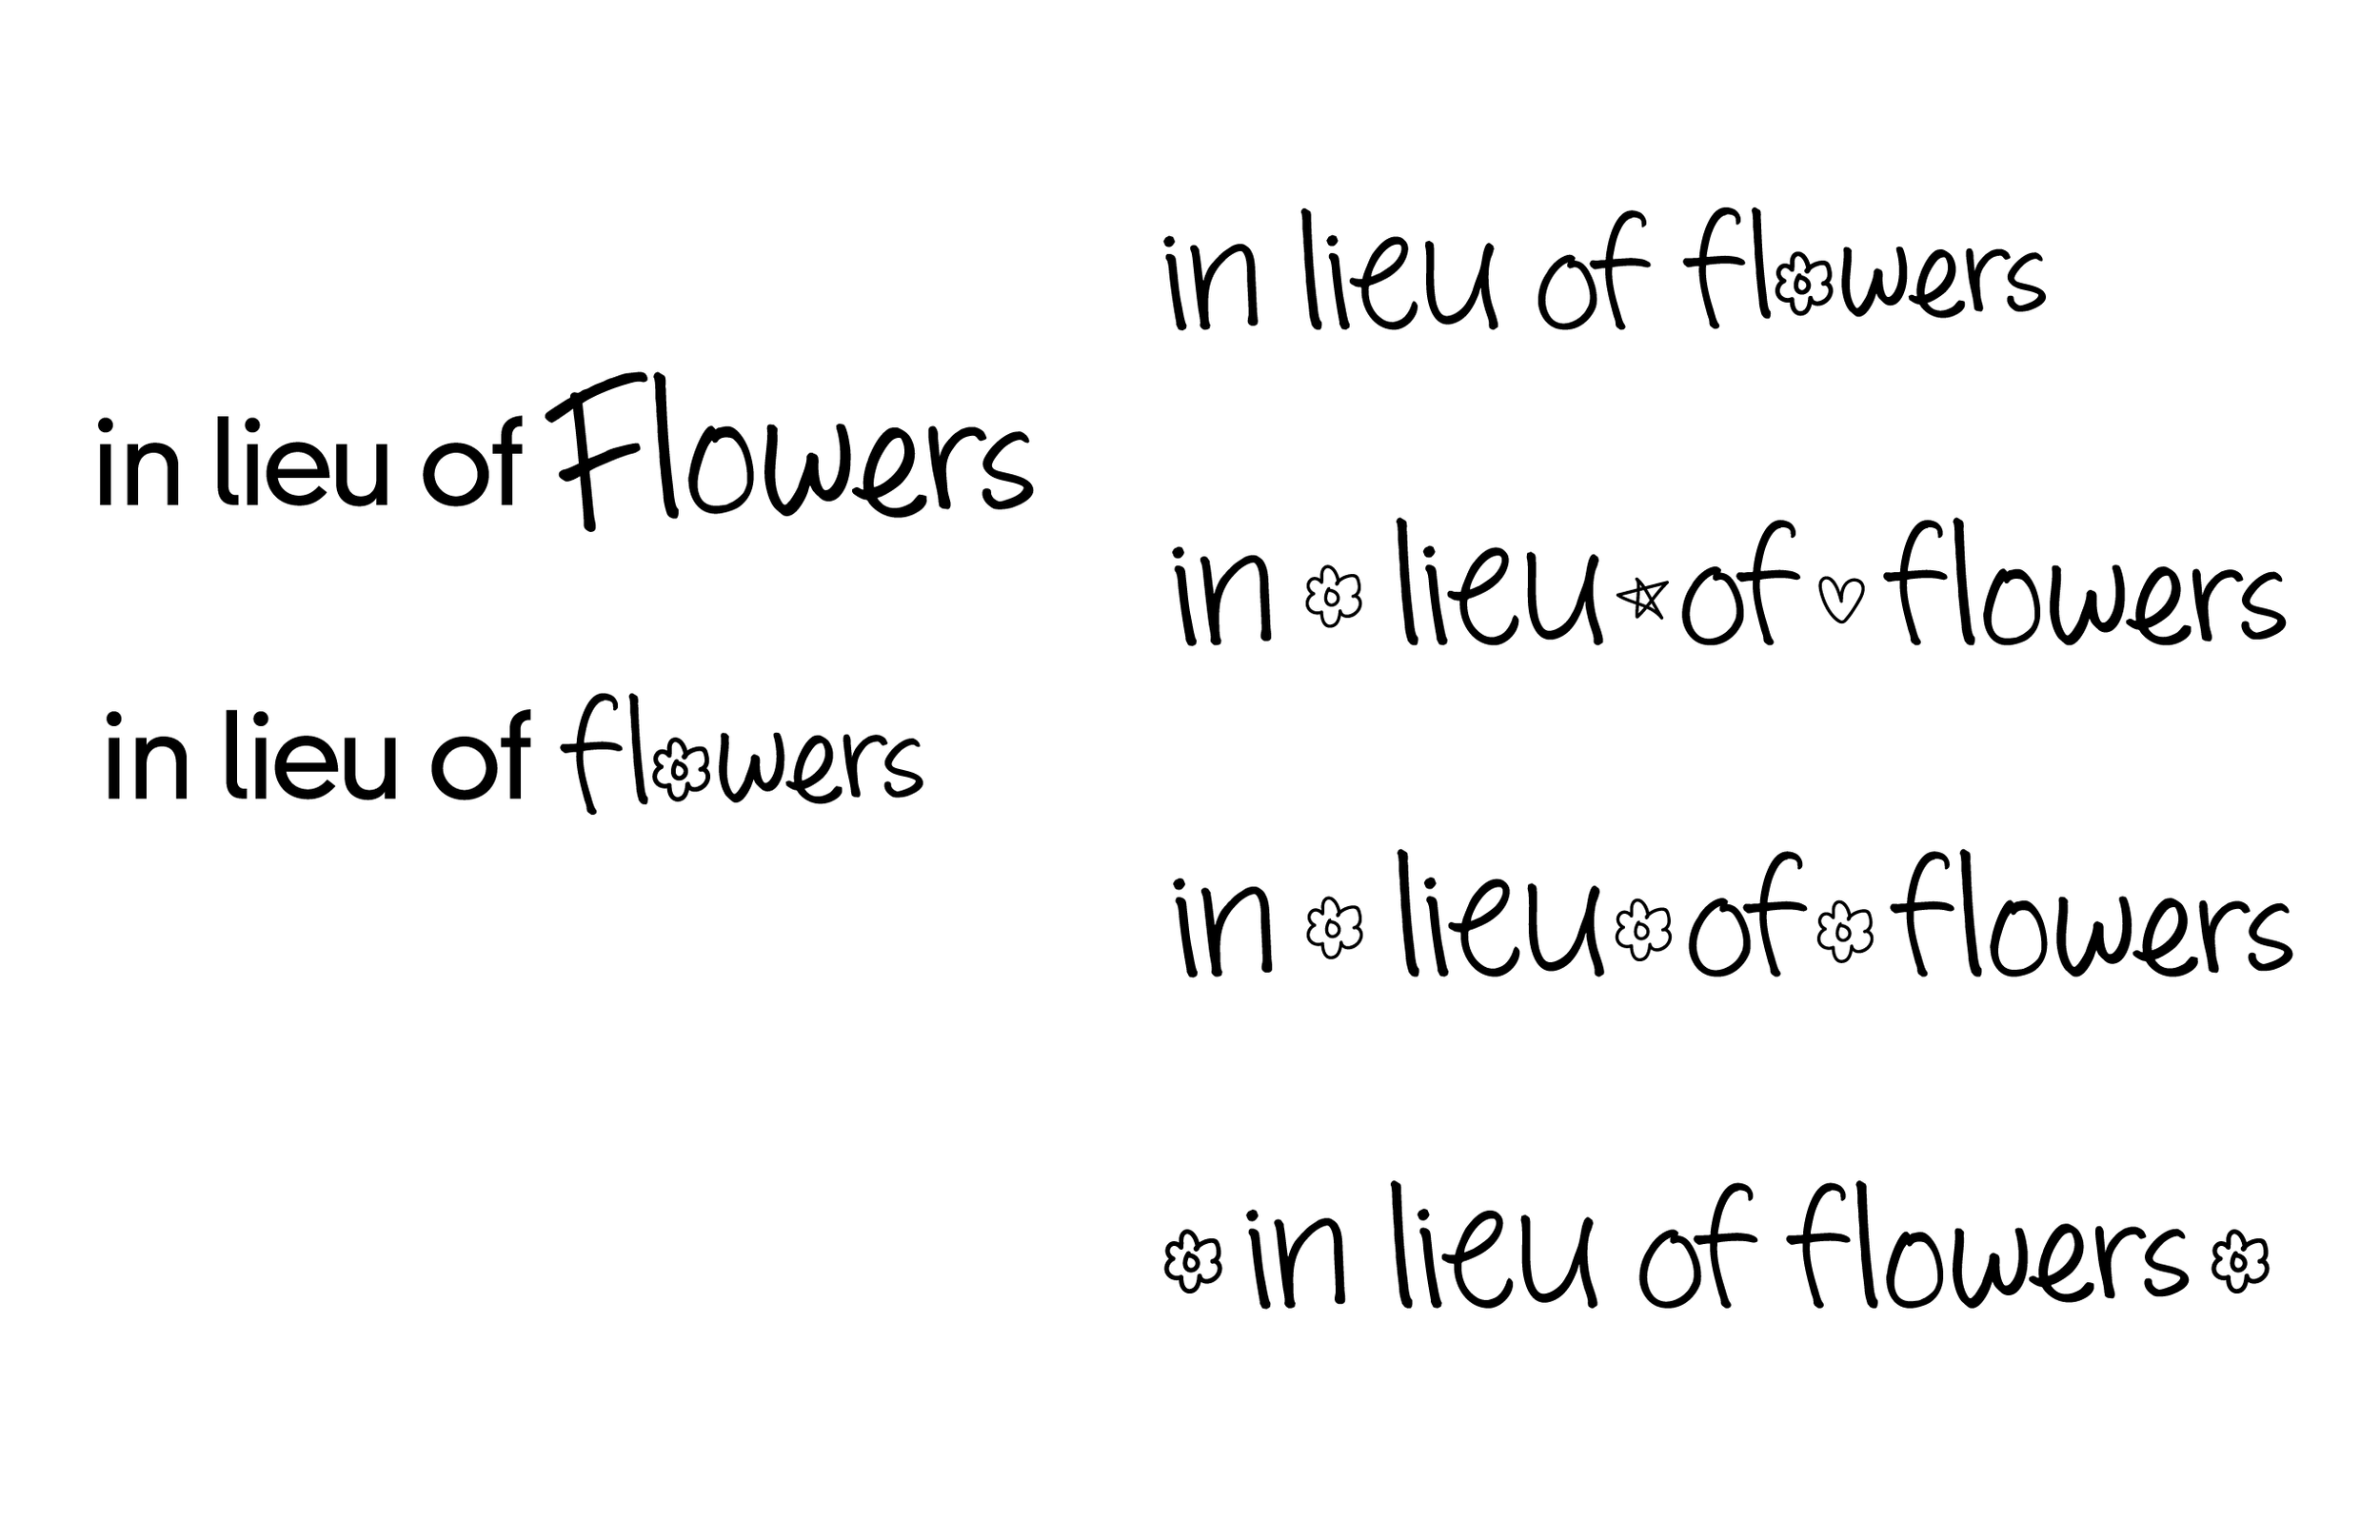 in lieu of Flowers
in lieu of flowers
in lieu of flowers
in lieu of flowers
in lieu of flowers
in lieu of flowers